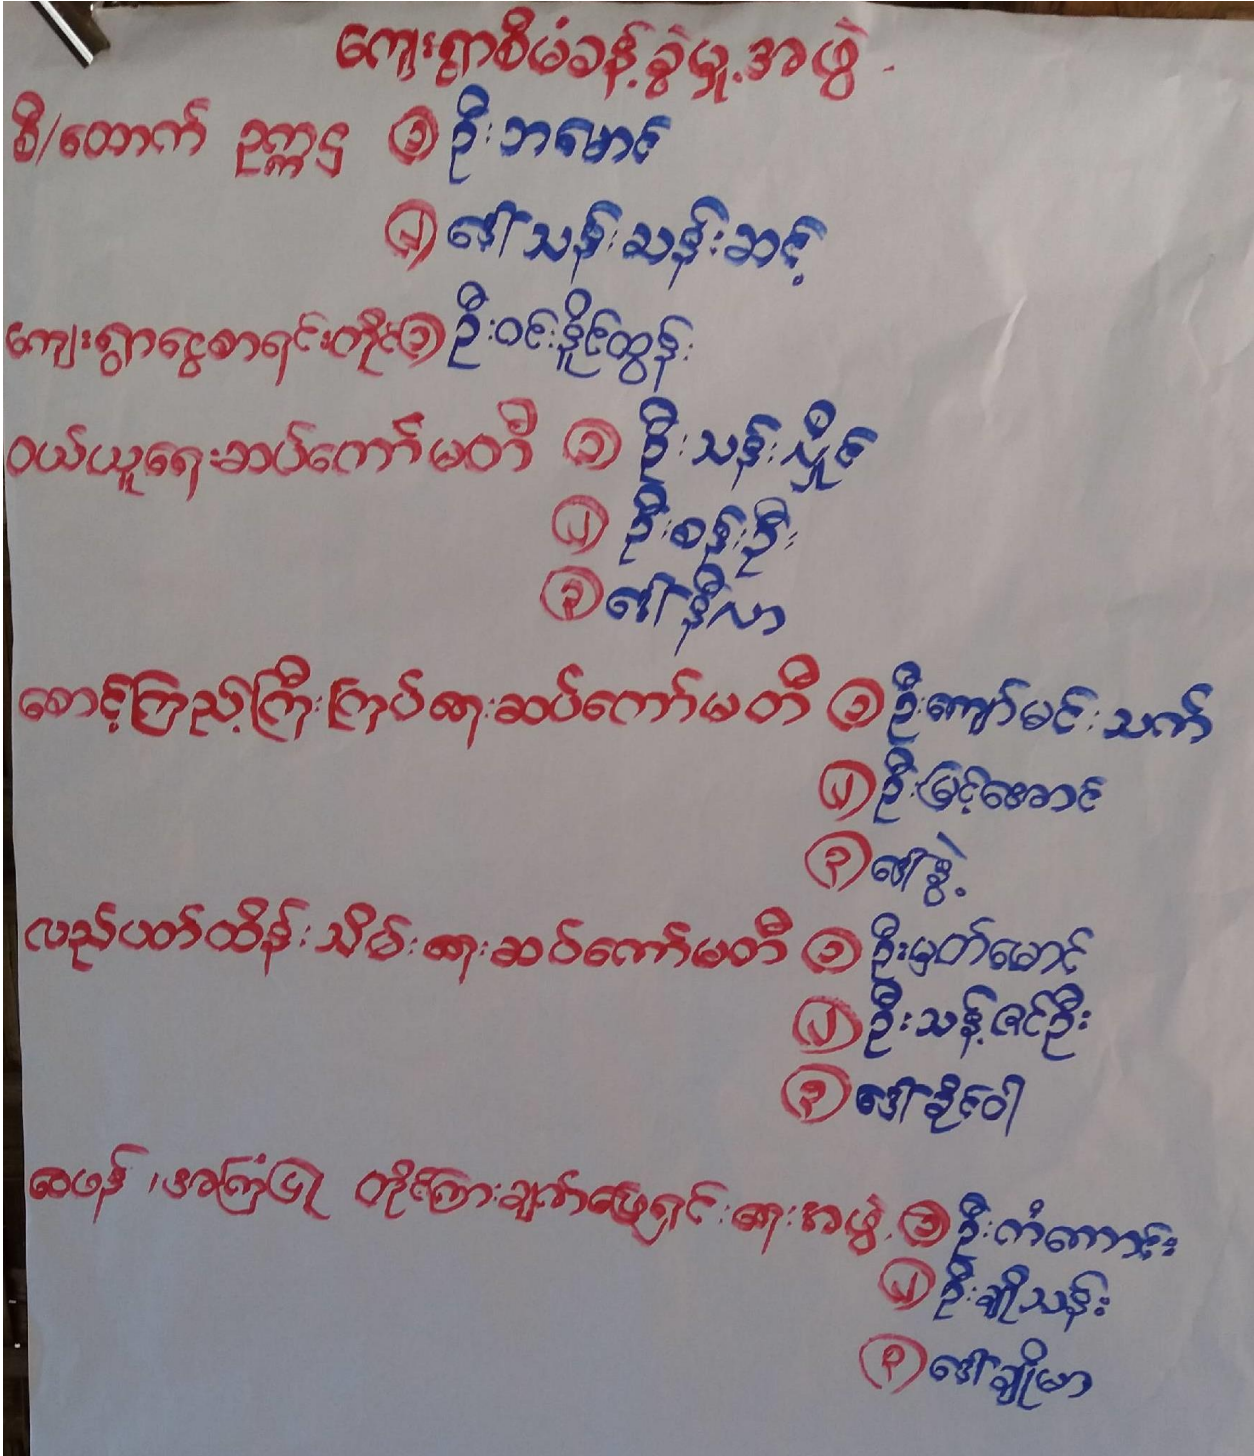 ကျေးရွာစီမံခန့်ခွဲမှု့အဖွဲ့
စီ/ထောက် ဥက္ကဌ ၁ ဦးဘမောင်
၂ ဒေါ်သန်းသန်းဆင့်
ကျေးရွာငွေစာရင်းကိုင် ၁ ဦးဝင်းနိူင်ထွန်း
ဝယ်ယူရေးဆပ်ကော်မတီ ၁ ဦးသန်းလှိူင်
၂ ဦးစန်းဦး
၃ ဒေါ်နီလာ
စောင့်ကြည့်ကြီးကြပ်ရေးဆပ်ကော်မတီ ၁ ဦးကျော်မင်းသက်
၂ ဦးမြင့်အောင်
၃ ဒေါ်ခွဲ့
လည်ပတ်ထိန်းသိမ်းရေးဆပ်ကော်မတီ ၁ ဦးမှတ်မောင်
၂ ဦးသန့်ဇင်ဦး
၃ ဒေါ်ခိုင်ဝါ
ဝေဖန်၊အကြံပြု တိုင်ကြားချက်ဖြေရှင်းရေးအဖွဲ့ ၁ ဦးကံကောင်း
၂ ဦးချိုသန်း
၃ ဒေါ်ချိုမာ